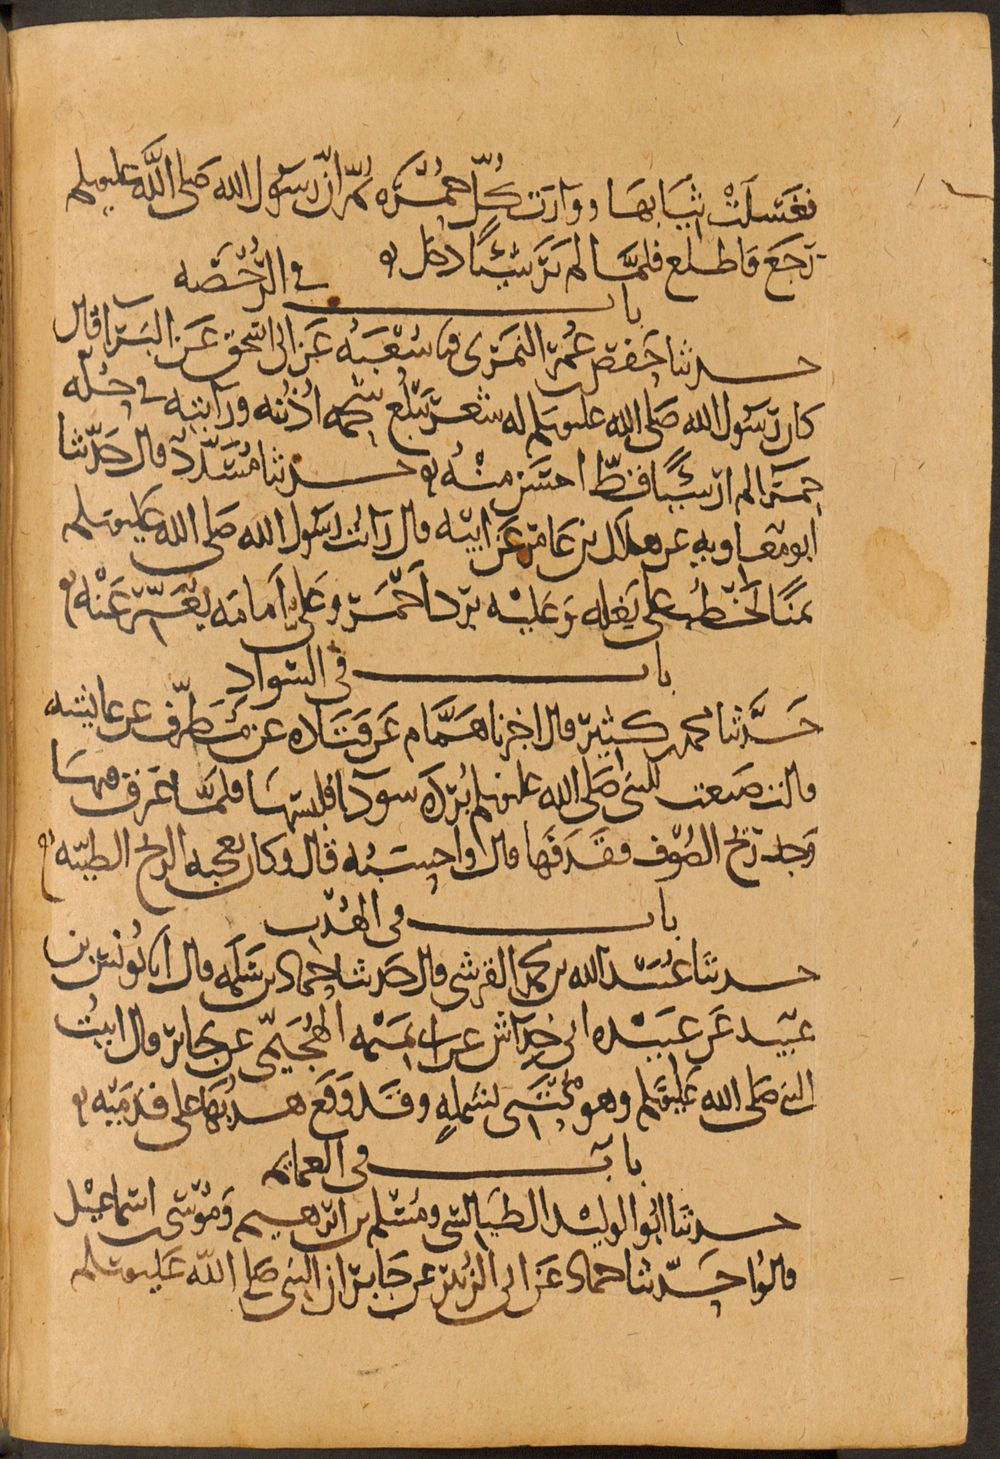 فغسلت ثيابها ووارت كل حمره ثم ان رسول الله صلى الله عليه وسلم
رجع فاطلع فلما لم ير شيئا دخل
باب في الرخصه
حدثنا حفص بن عمر النمري نا شعبه عن ابي اسحق عن البرا قال
كان رسول الله صلى الله عليه وسلم له شعر يبلغ شحمه اذنيه ورايته في حله
حمرا لم ار شيئا قط احسن منه حدثنا مسدد قال حدثنا
ابو معاويه عن هلال بن عامر عن ابيه قال رايت رسول الله صلى الله عليه وسلم
بمنا يخطب على بغله وعليه برد احمر وعلي امامه يعبر عنه
باب في السواد
حدثنا محمد بن كثير قال اخبرنا همام عن قتاده عن مطرف عن عايشه
قالت صبغت للنبي صلى الله عليه وسلم برده سودا فلبسها فلما عرق فيها
وجد ريح الصوف فقذفها قال واحسبه قال وكان يعجبه الريح الطيبه
باب في الهدب
حدثنا عبيد الله بن محمد القرشي قال حدثنا حماد بن سلمه قال انا يونس بن
عبيد عن عبيده ابي خداش عن ابي تميمه الهجيمي عن جابر قال اتيت
النبي صلى الله عليه وسلم وهو محتبي بشمله وقد وقع هدبها على قدميه
باب في العمايم
حدثنا ابو الوليد الطيالسي ومسلم بن ابرهيم وموسى بن اسماعيل
قالوا حدثنا حماد عن ابي الزبير عن جابر ان النبي صلى الله عليه وسلم